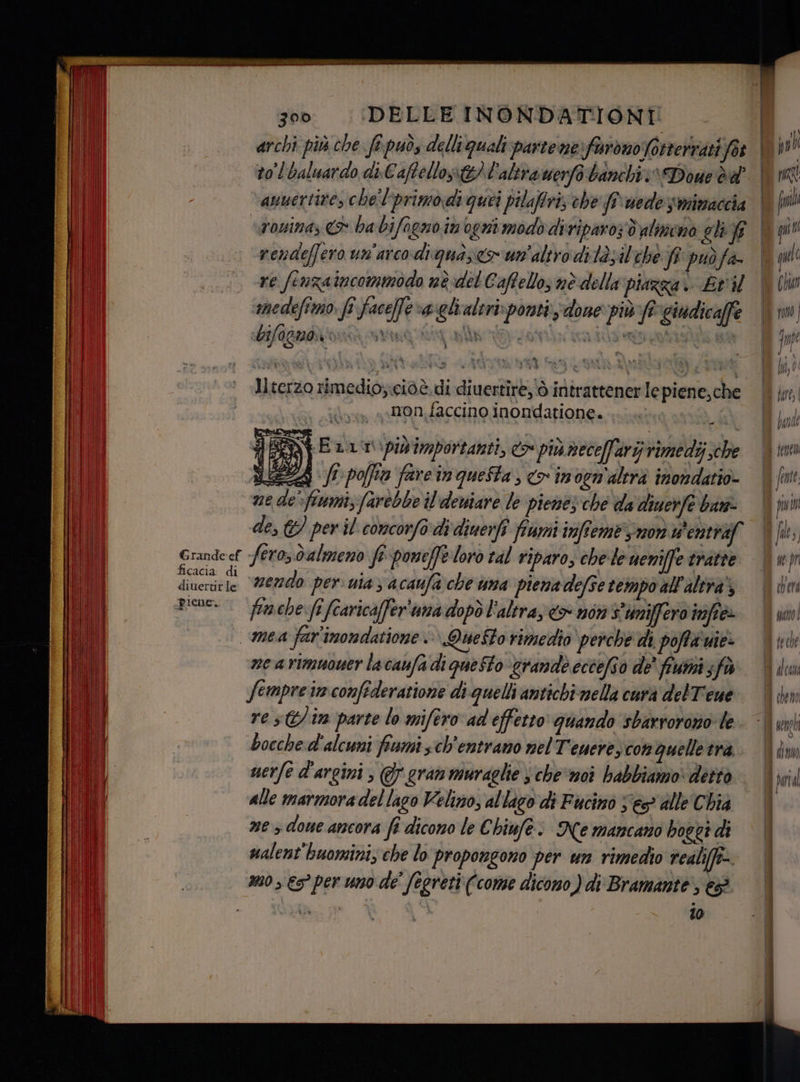 300 DELLE INONDATIONI
archi più che si può, delli quali parte ne furono sotterrati sot
to'l baluardo di Castello, & l'altra uerso banchi. Doue è d'
auuertire, che'l primo di quei pilastri, che si uede, minaccia
rouina, & ha bisogno in ogni modo di riparo; ò almeno gli si
rendessero un'arco di quà, & un'altro di là, il che si può fa-
re senza incommodo nè del Castello, nè della piazza. Et il
medesimo si facesse a gli altri ponti, doue più si giudicasse
bisogno.
Il terzo rimedio, cioè di diuertire, ò intrattener le piene, che
non faccino inondatione.
ELLI più importanti, & più necessarij rimedij, che
si possin fare in questa, & in ogn'altra inondatio-
ne de' fiumi, sarebbe il deuiare le piene; che da diuerse ban-
de, & per il concorso di diuersi fiumi insieme, non u'entras
Grande ef
ficacia di
diuertir le
piene.
sero, ò almeno si ponesse loro tal riparo, che le uenisse tratte
nendo per uia, acausa che una piena desse tempo all'altra,
sin che si scaricasser'una dopò l'altra, & non s'unissero insie-
mea far'inondatione. Questo rimedio perche di possa uie-
ne a rimuouer la causa di questo grande eccesso de' fiumi, fù
sempre in consideratione di quelli antichi nella cura del Teue
re, & in parte lo misero ad effetto quando sbarrorono le
bocche d'alcuni fiumi, ch'entrano nel Teuere, con quelle tra
uerse d'argini, & gran muraglie, che noi habbiamo detto
alle marmora del lago Velino, al lago di Fucino, & alle Chia
ne, doue ancora si dicono le Chiuse. Ne mancano hoggi di
ualent'huomini, che lo propongono per un rimedio realissi-
mo, & per uno de' segreti (come dicono) di Bramante, &
io